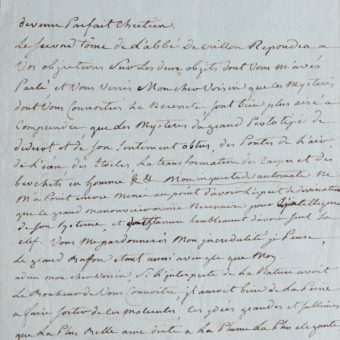 devenir Parfait Chretien.
Le second tome de L'abbé de Crillon Repondra a
Vos objections Sur Les deux objets dont Vous m'avés
Parlé et Vous verrés Mon cher Voisin que les Mysteres
dont Vous Connoitrés La Necessité sont bien plus aisé a
Comprendre que Les Mysteres du grand Prototype de
diderot et de Son Sentiment obtus, des Pontes de l'air,
de l'eau des Etoiles La transformation des Carpes et des
brochets en homme &&. Mon inquietude automate Ne
M'a Point encore mené au point d'avoir L'esprit de
que le grand necessaire pour
de Son Systeme, et hautement d'avoir La
clef. Vous Me pardonnerés Mon incredulité je Pense,
Le grand Buffon etoit aussi aveugle que Moy
adieu mon cher Voisin, Si L'interprete de La Nature avoit
Le Bonheur de Vous Connoitre, il auroit bien de La Peine
a faire Sortir de Ces Molecules, Ces idées grandes et sublimes
que La Plus Belle ame dicte a La Plume La Plus elegante